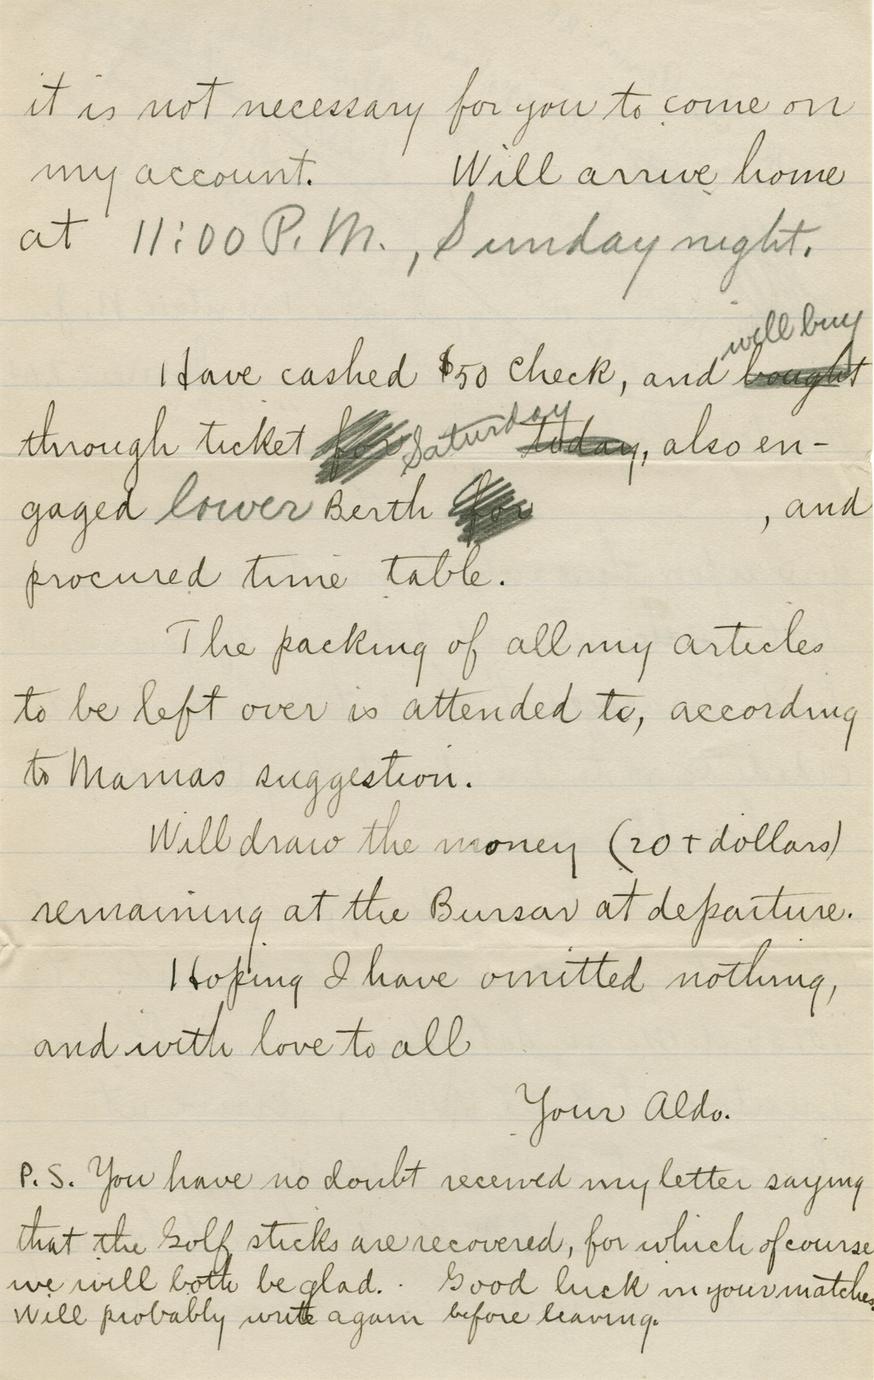 it is not necessary for you to come on
my account. Will arrive home
at 11:00 P.M., Sunday night.
will buy
Have cashed $50 check, and bought
through ticket for Saturday today, also en-
gaged lower Berth for , and
procured time table.
The packing of all my articles
to be left over is attended to, according
to Mamas suggestion.
Will draw the money (20 + dollars)
remaining at the Bursar at departure.
Hoping I have omitted nothing,
and with love to all
Your Aldo.
P.S. You have no doubt received my letter saying
that the Golf sticks are recovered, for which of course
we will both be glad. Good luck in your matches.
Will probably write again before leaving.